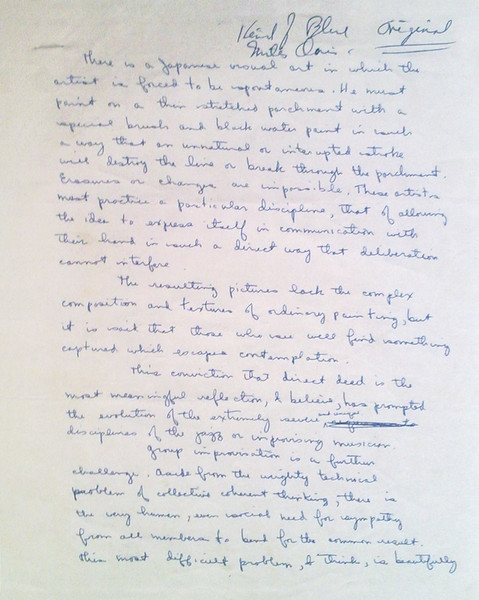 Kind of Blue Original
Miles Davis
There is a Japanese visual art in which the
artist is forced to be spontaneous. He must
paint on a thin stretched parchment with a
special brush and black water paint in such
a way that an unnatural or interrupted stroke
will destroy the line or break through the parchment.
Erasures or changes are impossible. These artists
must practice a particular discipline, that of allowing
the idea to express itself in communication with
their hand in such a direct way that deliberation
cannot interfere.
The resulting pictures lack the complex
composition and textures of ordinary painting, but
it is said that those who see well find something
captured which escapes contemplation.
This conviction that direct deed is the
most meaningful reflection, I believe, has prompted
the evolution of the extremely severe and unique
disciplines of the jazz or improvising musician.
Group improvisation is a further
challenge. Aside from the weighty technical
problem of collective coherent thinking, there is
the very human, even social need for sympathy
from all members to bend for the common result.
This most difficult problem, I think, is beautifully